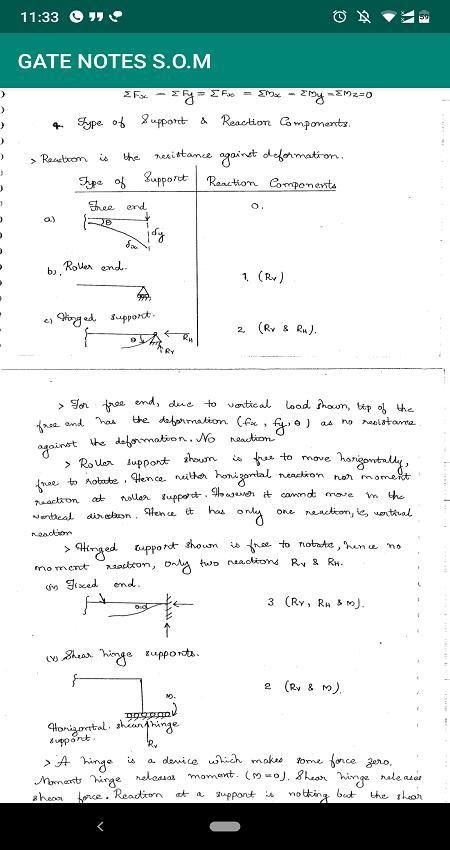 11:33
59
GATE NOTES S.O.M
ΣFx = ΣFy = ΣFz = ΣMx = ΣMy = ΣMz=0
Type of Support & Reaction Components.
> Reaction is the resistance against deformation.
Type of Support Reaction Components
a) Free end 0.
θ
δx
δy
b). Roller end. 1. (Rv)
c) Hinged support. 2 (Rv & RH).
θ
RH
Rv
> For free end, due to vertical load shown, tip of the
free end has the deformation (fx, fy, θ) as no resistance
against the deformation. No reaction
> Roller support shown is free to move horizontally,
free to rotate. Hence neither horizontal reaction nor moment
reaction at roller support. However it cannot move in the
vertical direction. Hence it has only one reaction, ie, vertical
reaction
> Hinged support shown is free to rotate, hence no
moment reaction, only two reactions Rv & RH.
(iv) Fixed end.
3 (Rv, RH & M).
(v) Shear hinge supports.
2 (Rv & M).
M.
Horizontal shear hinge
support.
Rv
> A hinge is a device which makes some force zero.
Moment hinge releases moment. (M=0). Shear hinge releases
shear force. Reaction at a support is nothing but the shear